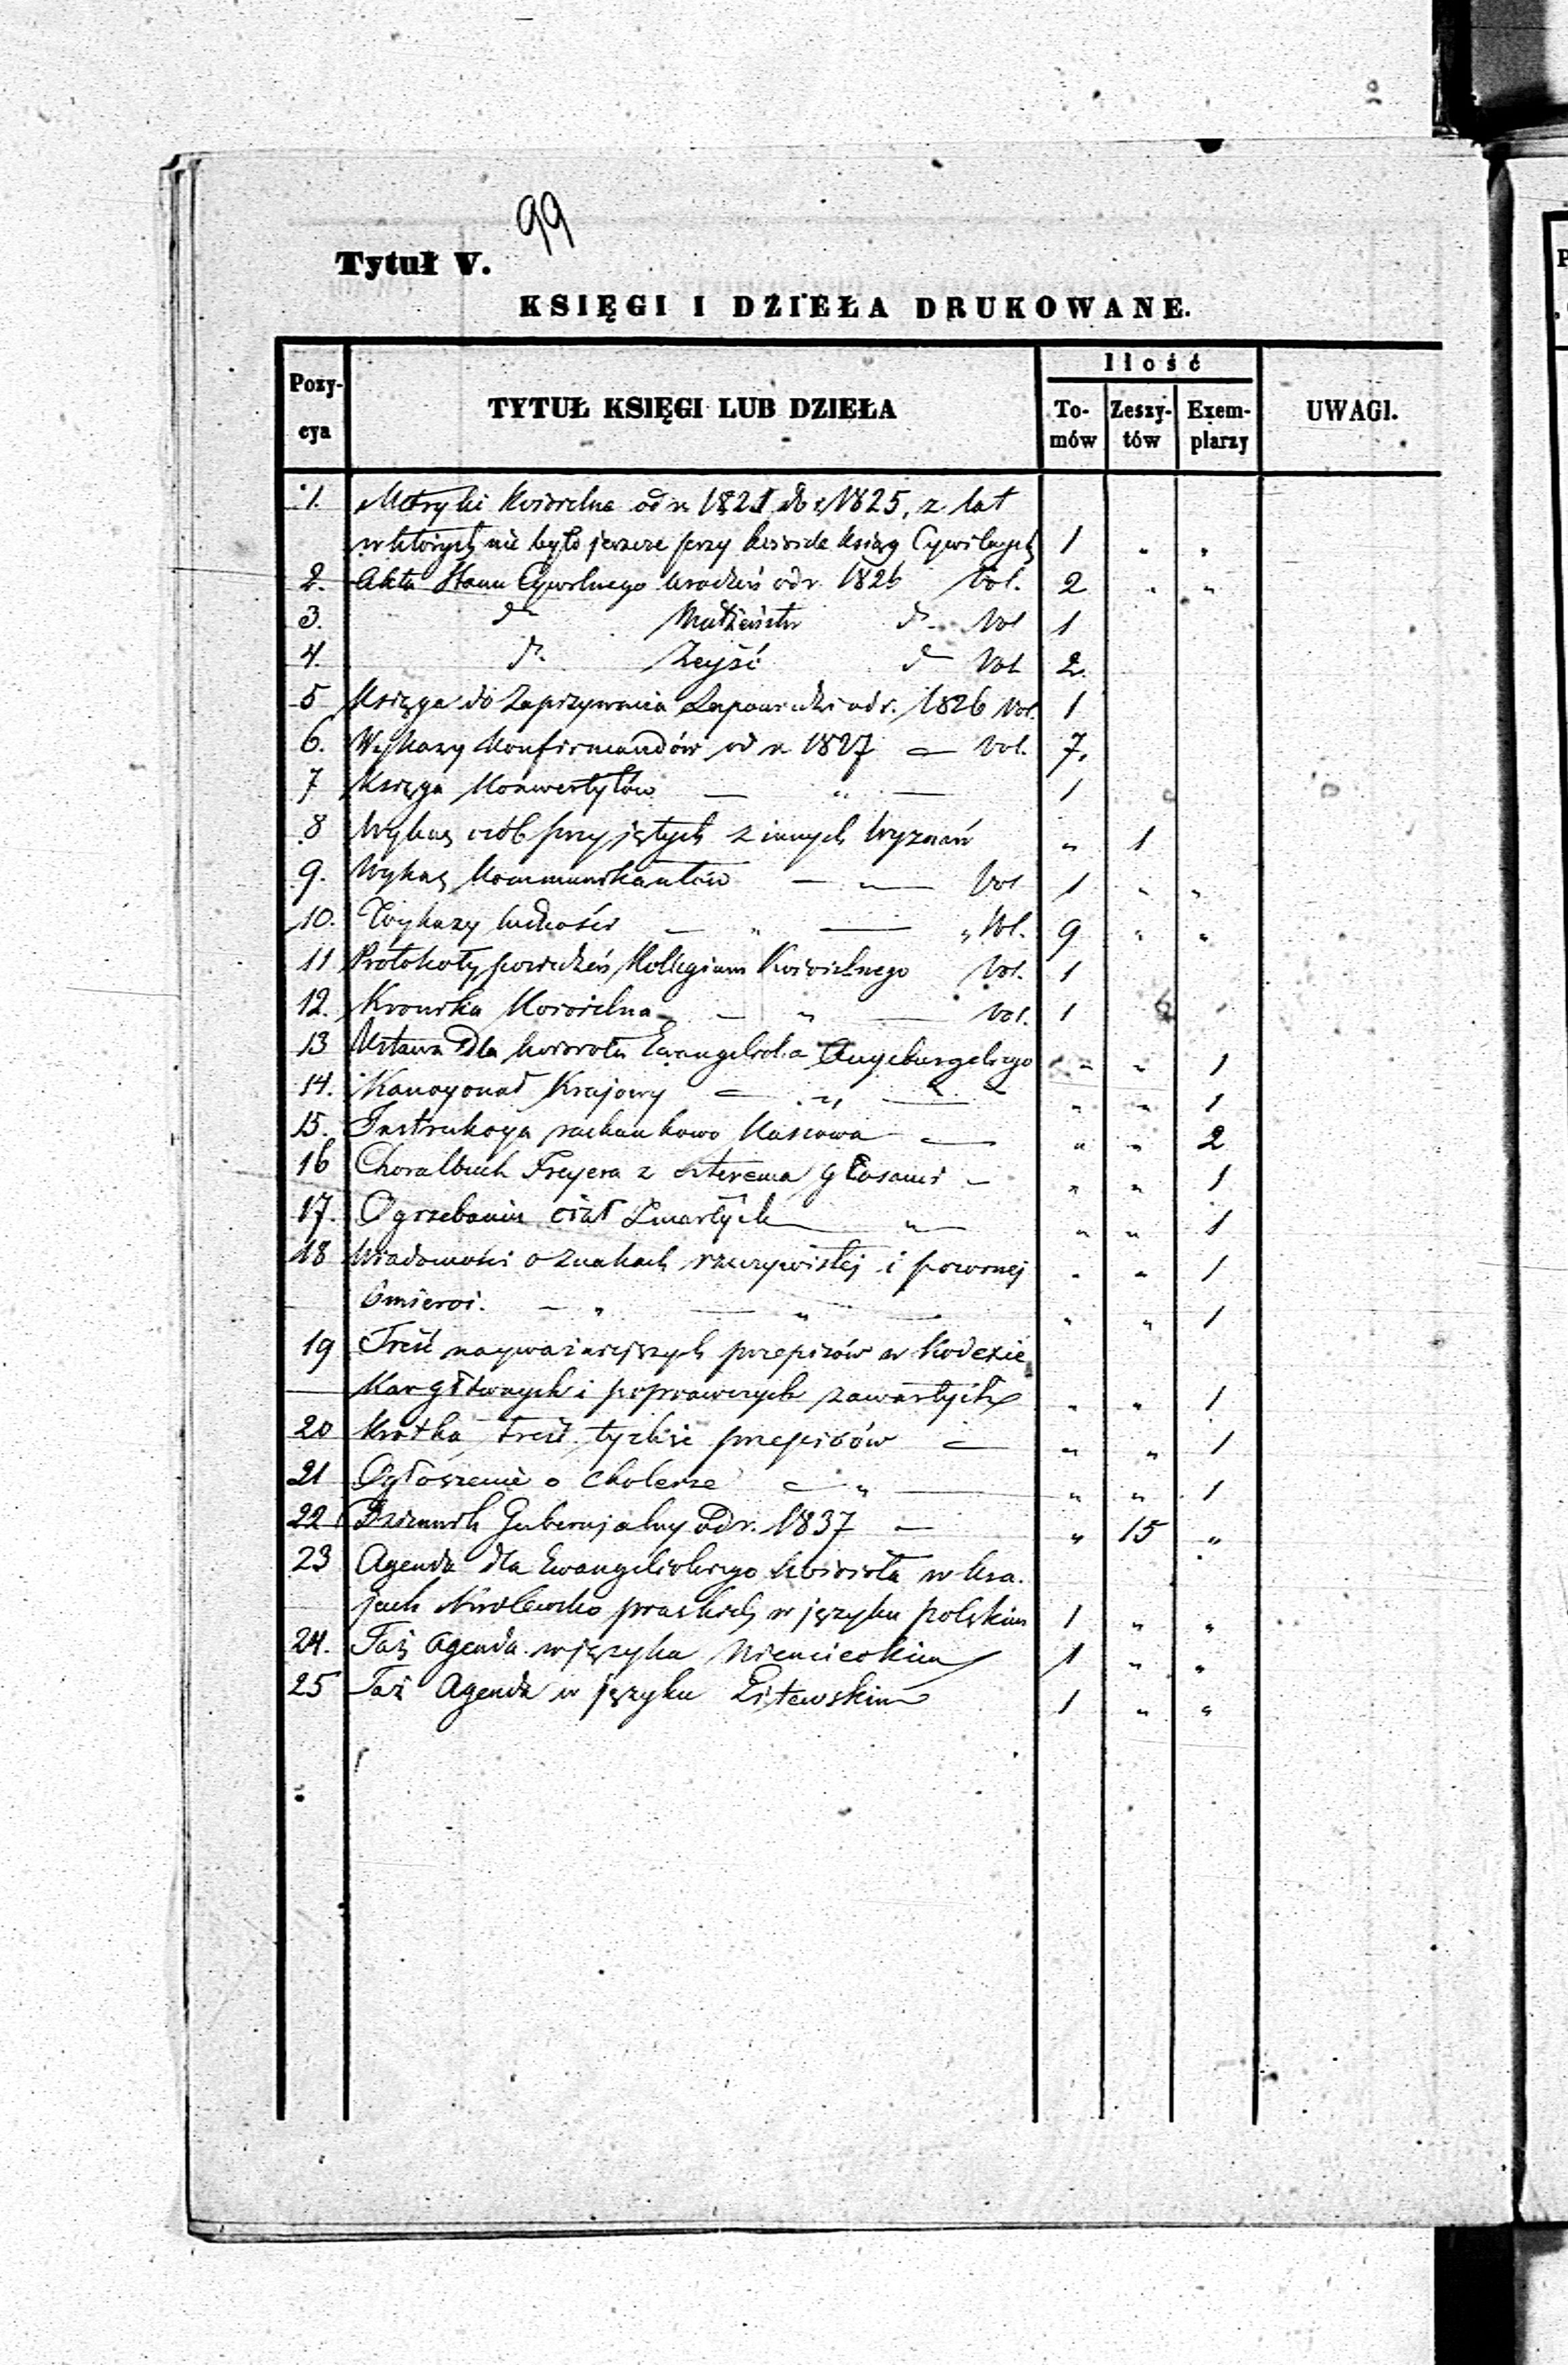 99
Tytuł V.
KSIĘGI I DZIEŁA DRUKOWANE.
Pozy-cya | TYTUŁ KSIĘGI LUB DZIEŁA | Ilość | UWAGI.
To-mów | Zeszy-tów | Exem-plarzy
1. Metryki Kościelne od r. 1821 do r. 1825, z lat
w których nie było jeszcze przy kościele Ksiąg Cywilnych 1 " "
2. Akta Stanu Cywilnego Urodzeń od r. 1826 Vol. 2 " "
3. do Małżeństw do Vol 1
4. do Zejść do Vol 2
5 Księga do Zapisywania Zapowiedzi od r. 1826 Vol. 1
6. Wykazy Konfirmandów od r. 1827 — Vol. 7.
7 Księga Konwertytów — " — 1
8 Wykaz osób przyjętych z innych Wyznań " 1
9. Wykaz Kommunikantów — " — Vol 1 " "
10. Wykazy ludności — " — " Vol. 9 " "
11 Protokoły posiedzeń Kollegium Kościelnego Vol. 1
12. Kronika Kościelna — " — Vol. 1
13 Ustawa dla kościoła Ewangelicko Augsburgskiego " " 1
14. Kancyonał Krajowy — " — " " 1
15. Instrukcya rachunkowo Kassowa — " " 2
16 Choralbuch Freyera z czterema głosami — " " 1
17. Ogrzebaniu ciał Zmarłych — " — " " 1
18 Wiadomości o znakach rzeczywistej i pozornej " " 1
śmierci. — " — " — " " 1
19 Treść najważniejszych przepisów w Kodexie
Kar głównych i poprawczych zawartych " " 1
20 Krótka treść tychże przepisów — " " 1
21 Ogłoszenie o cholerze — " — " " 1
22 Dziennik Gubernjalny od r. 1837 — " 15 "
23 Agenda dla Ewangelickiego kościoła w kra.
jach Królewsko pruskich w języku polskim 1 " "
24. Taż Agenda w języku Niemieckim 1 " "
25 Taż Agenda w języku Litewskim 1 " "